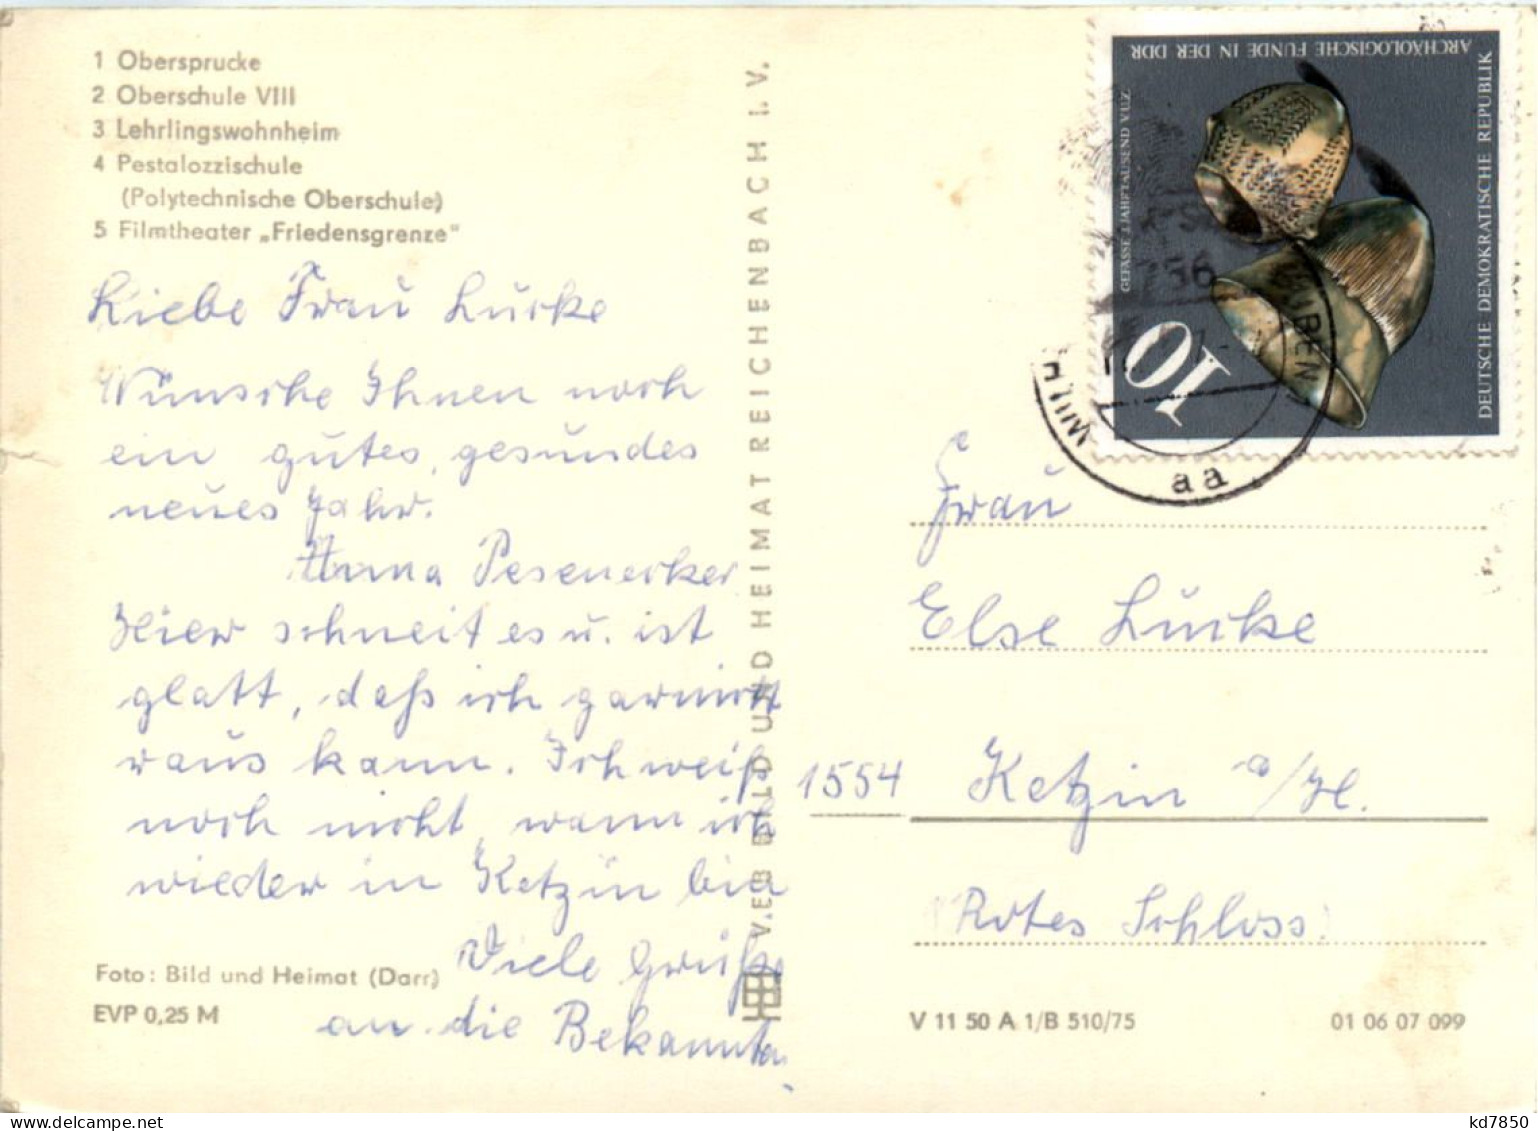 1 Obersprucke
2 Oberschule VIII
3 Lehrlingswohnheim
4 Pestalozzischule
(Polytechnische Oberschule)
5 Filmtheater „Friedensgrenze"
Liebe Frau Lücke
Wünsche Ihnen noch
ein gutes, gesundes
neues Jahr.
Anna
Hier schneit es u. ist
glatt, daß ich garnicht
raus kann. Ich weiß
noch nicht, wann ich
wieder in Ketzin bin
Viele Grüße
an die Bekannten
Foto: Bild und Heimat (Darr)
EVP 0,25 M
VEB BILD UND HEIMAT REICHENBACH I. V.
ARCHÄOLOGISCHE FUNDE IN DER DDR
DEUTSCHE DEMOKRATISCHE REPUBLIK
GEFÄSSE 1. JAHRTAUSEND V.U.Z.
10
WILH
GUBEN
aa
Frau
Else Lücke
1554 Ketzin a/H.
Rotes Schloss
V 11 50 A 1/B 510/75
01 06 07 099
kd7850